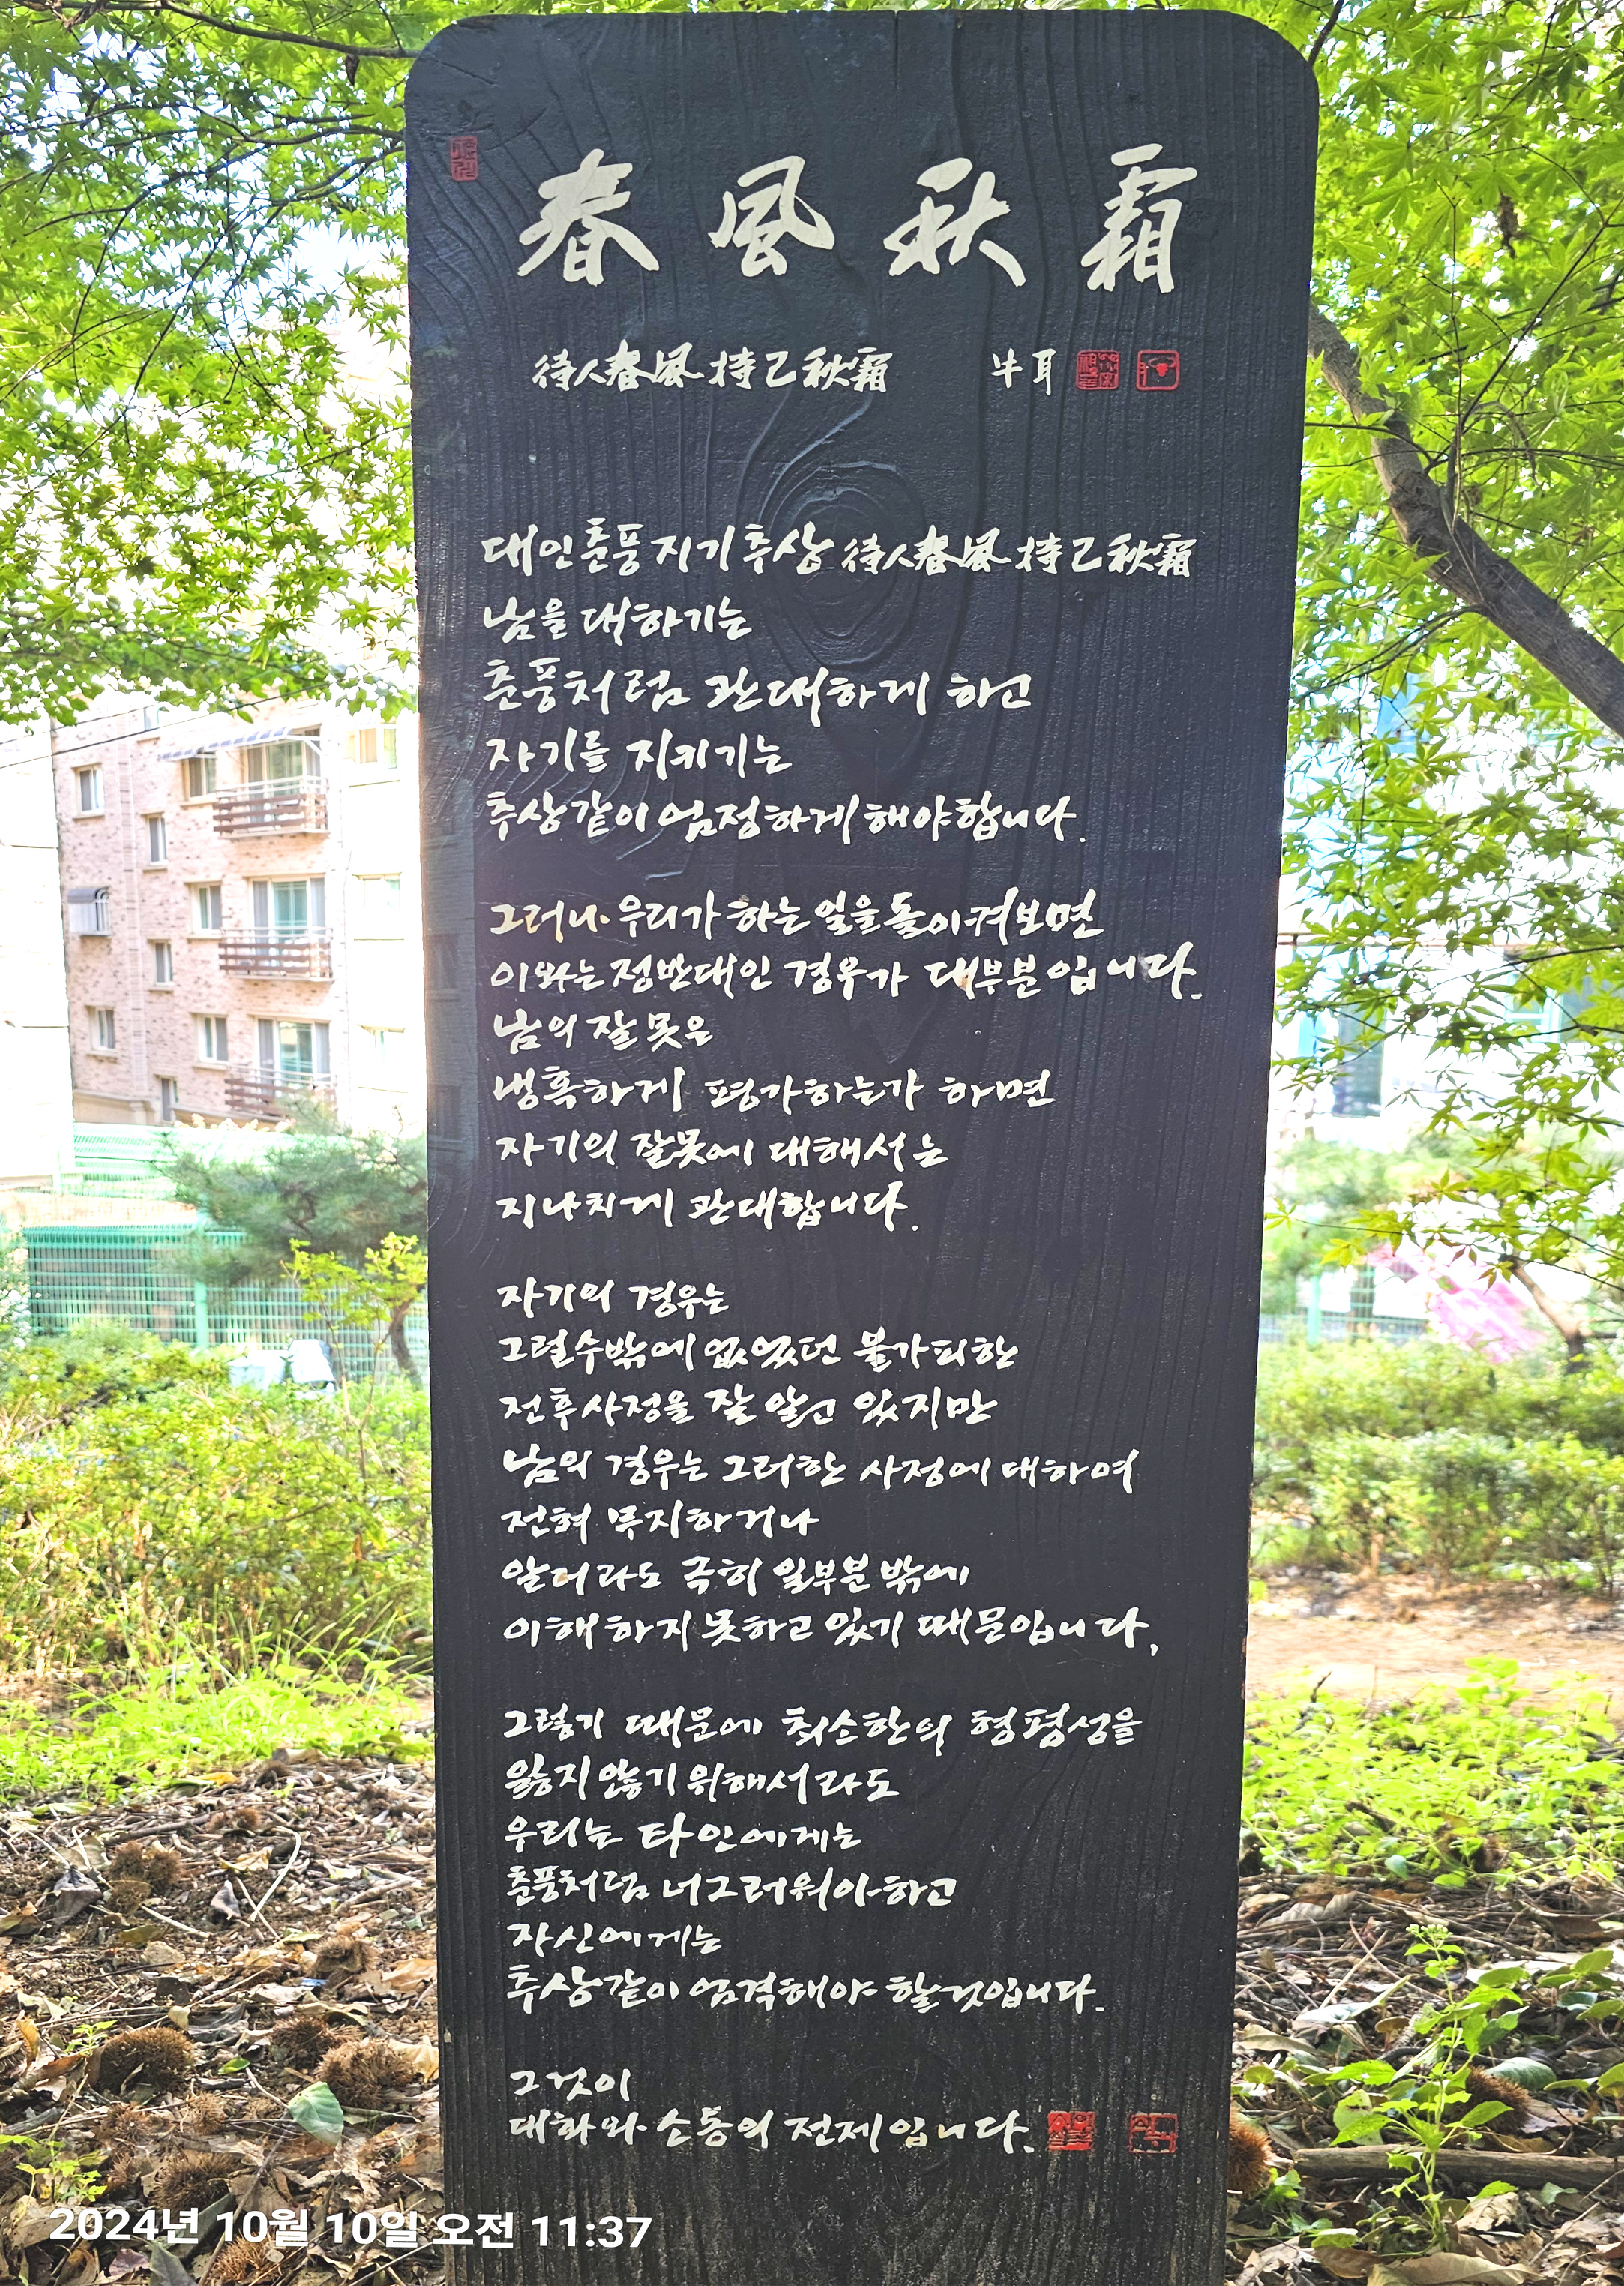 春風秋霜
待人春風 持己秋霜 牛耳
대인춘풍 지기추상 待人春風 持己秋霜
남을 대하기는
춘풍처럼 관대하게 하고
자기를 지키기는
추상같이 엄정하게 해야합니다.
그러나 우리가 하는 일을 돌이켜보면
이와는 정반대인 경우가 대부분입니다.
남의 잘못은
냉혹하게 평가하는가 하면
자기의 잘못에 대해서는
지나치게 관대합니다.
자기의 경우는
그럴수밖에 없었던 불가피한
전후사정을 잘 알고 있지만
남의 경우는 그러한 사정에 대하여
전혀 무지하거나
알더라도 극히 일부분밖에
이해하지 못하고 있기 때문입니다.
그렇기 때문에 최소한의 형평성을
잃지 않기 위해서라도
우리는 타인에게는
춘풍처럼 너그러워야하고
자신에게는
추상같이 엄격해야 할것입니다.
그것이
대화와 소통의 전제입니다.
2024년 10월 10일 오전 11:37